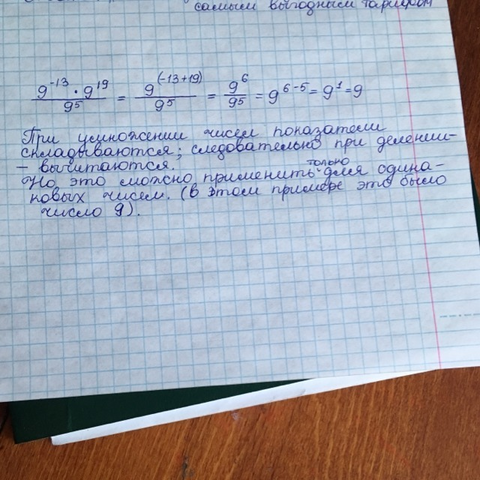 самым выгодным тарифом
9^-13 · 9^19 / 9^5 = 9^(-13+19) / 9^5 = 9^6 / 9^5 = 9^6-5 = 9^1 = 9
При умножении чисел показатели
складываются; следовательно при делении -
- вычитаются.
Но это можно применить только для одина-
ковых чисел. (в этом примере это было
число 9).